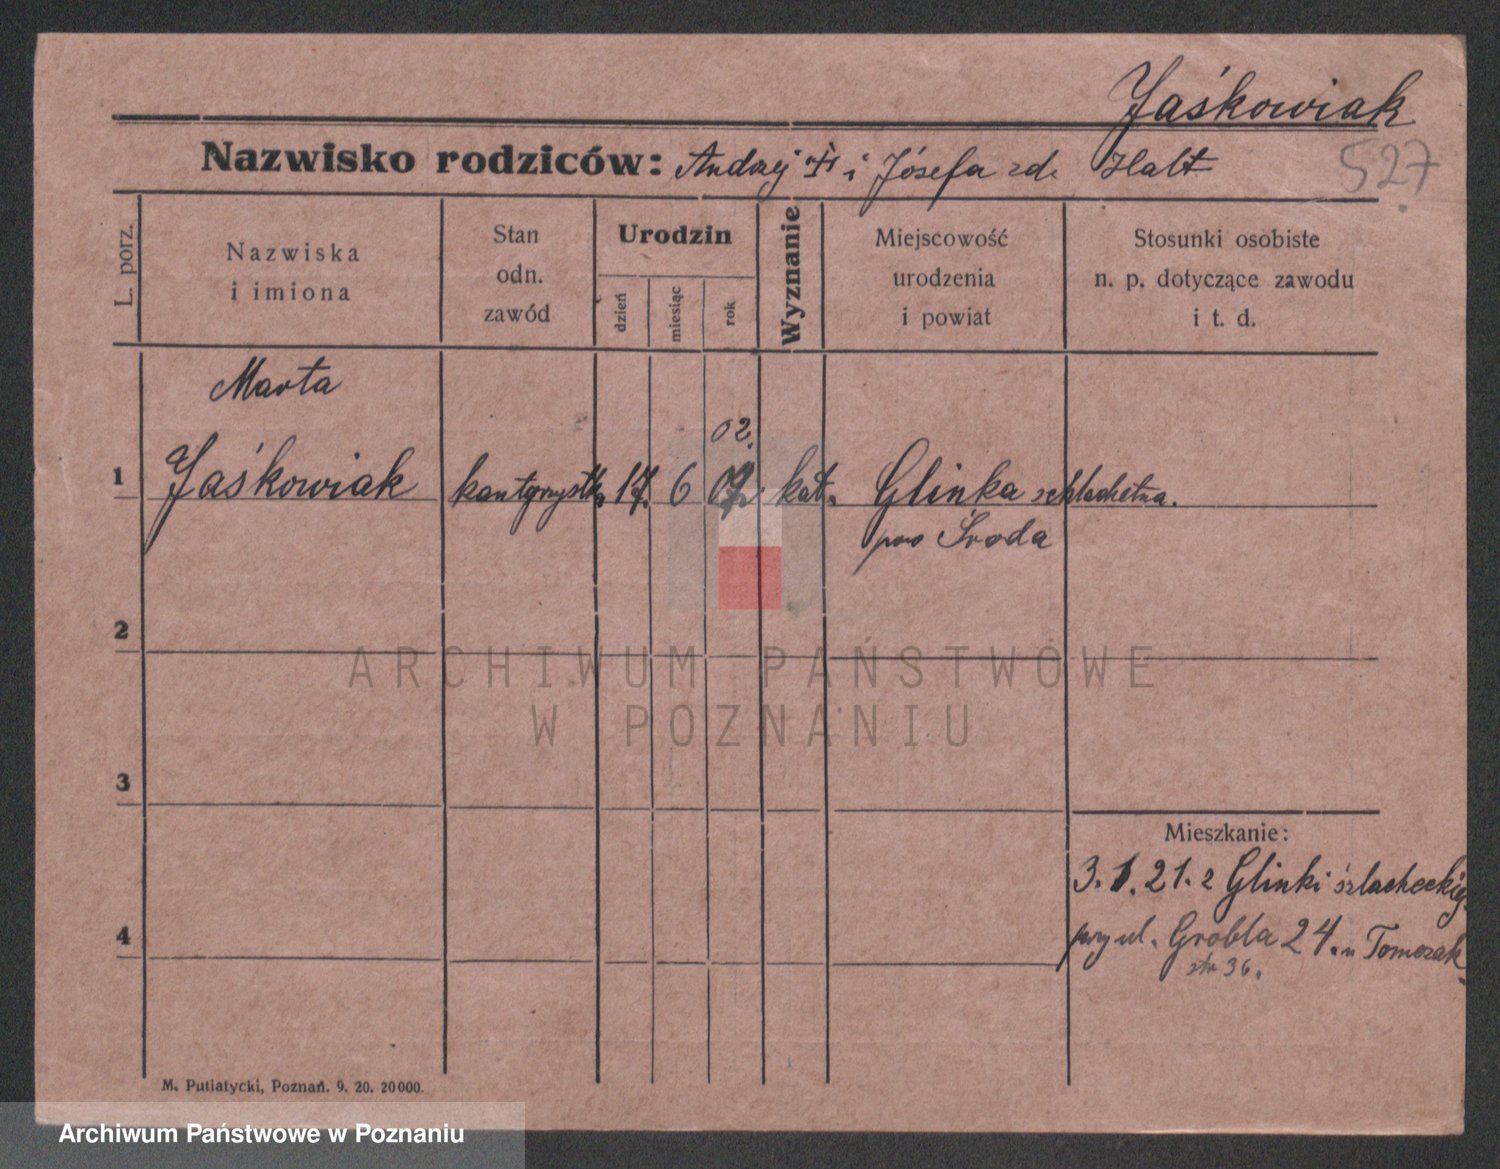 Jaśkowiak
Nazwisko rodziców: Andrzej i Józefa zd. Halt
527
L. porz.
Nazwiska
i imiona
Stan
odn.
zawód
Urodzin
dzień
miesiąc
rok
Wyznanie
Miejscowość
urodzenia
i powiat
Stosunki osobiste
n. p. dotyczące zawodu
i t. d.
Marta
02.
1 Jaśkowiak kantorzystk. 17. 6 kat. Glinka schlachetna.
pow Środa
2
ARCHIWUM PAŃSTWOWE
W POZNANIU
3
Mieszkanie:
3.1.21. z Glinki szlacheckiej
przy ul. Grobla 24. u Tomczak
4
str 36.
M. Putiatycki, Poznań. 9. 20. 20000.
Archiwum Państwowe w Poznaniu